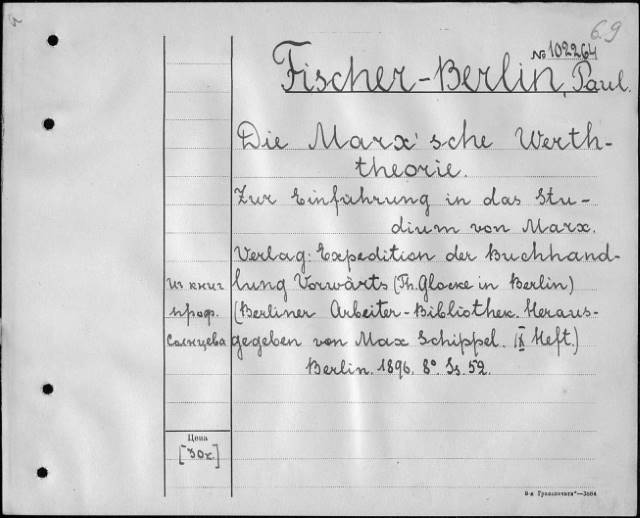 69
№ 102264
Fischer-Berlin, Paul.
Die Marx'sche Werth-
theorie.
Zur Einführung in das Stu-
dium von Marx.
Verlag: Expedition der Buchhand-
lung Vorwärts (Th. Glocke in Berlin)
(Berliner Arbeiter-Bibliothek. Heraus-
gegeben von Max Schippel. IX Heft.)
Berlin. 1896. 8° Ss. 52.
Из книг
проф.
Солнцева
Цена
[30к.]